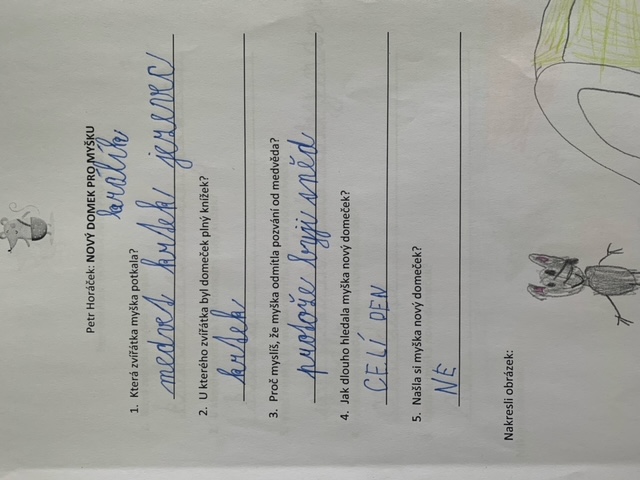 Petr Horáček: NOVÝ DOMEK PRO MYŠKU
1. Která zvířátka myška potkala?
králík
medvět krtek jezevec
2. U kterého zvířátka byl domeček plný knížek?
krtek
3. Proč myslíš, že myška odmítla pozvání od medvěda?
protože byji sněd
4. Jak dlouho hledala myška nový domeček?
CELÍ DEN
5. Našla si myška nový domeček?
NE
Nakresli obrázek: